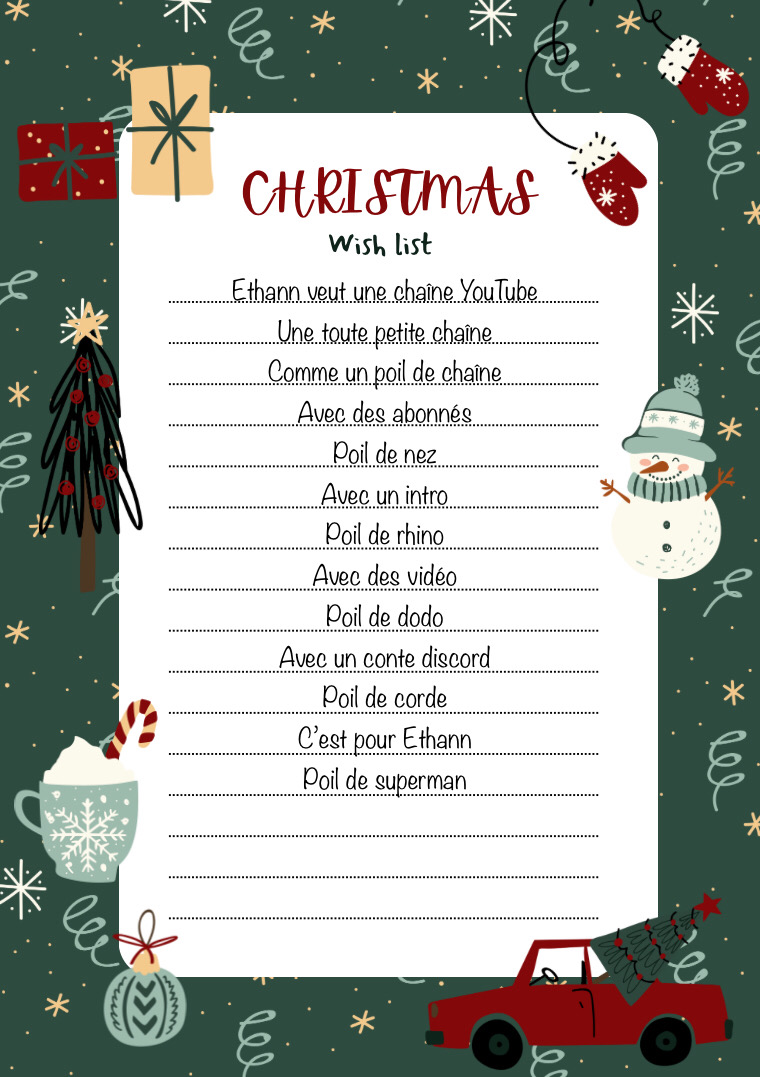 CHRISTMAS
Wish list
Ethann veut une chaîne YouTube
Une toute petite chaîne
Comme un poil de chaîne
Avec des abonnés
Poil de nez
Avec un intro
Poil de rhino
Avec des vidéo
Poil de dodo
Avec un conte discord
Poil de corde
C'est pour Ethann
Poil de superman